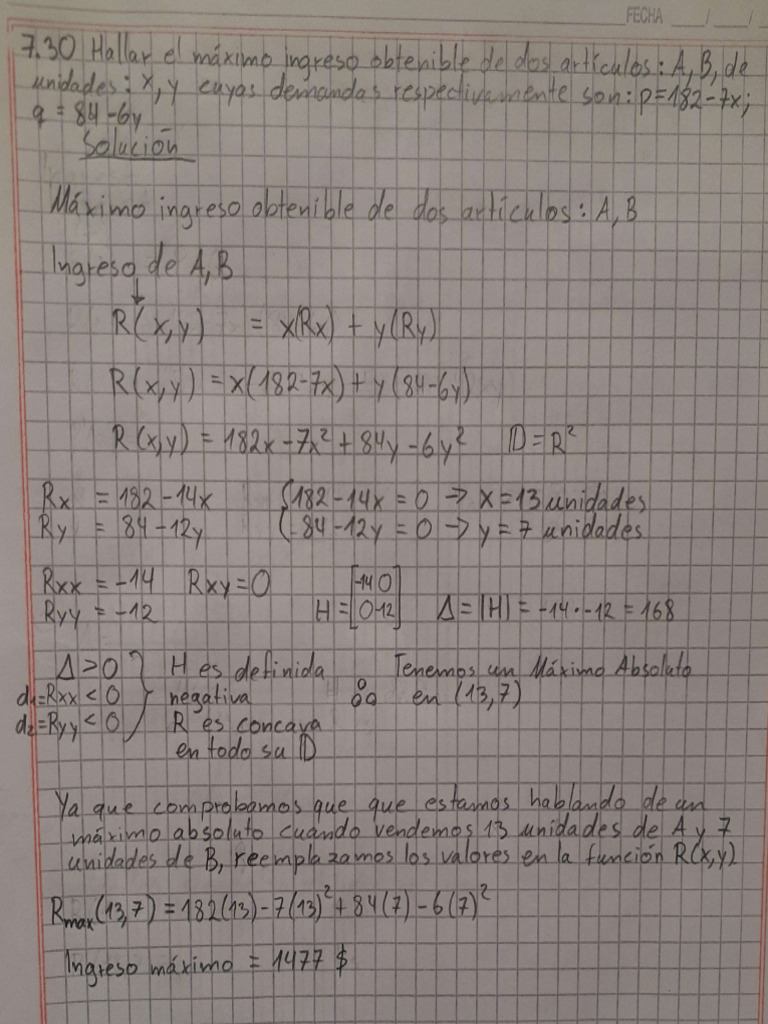 FECHA
7.30 Hallar el máximo ingreso obtenible de dos artículos: A, B, de
unidades: x, y cuyas demandas respectivamente son: p=182-7x;
q = 84-6y
Solución
Máximo ingreso obtenible de dos artículos: A, B
Ingreso de A, B
↓
R(x,y) = x(Rx) + y(Ry)
R(x,y) = x(182-7x) + y(84-6y)
R(x,y) = 182x - 7x² + 84y - 6y² D = R²
Rx = 182 - 14x { 182 - 14x = 0 → x = 13 unidades
Ry = 84 - 12y 84 - 12y = 0 → y = 7 unidades
Rxx = -14 Rxy = 0 [-14 0]
Ryy = -12 H = [0 -12] Δ = |H| = -14 · -12 = 168
Δ > 0 } H es definida Tenemos un Máximo Absoluto
d₁=Rxx < 0 negativa ∴ en (13,7)
d₂=Ryy < 0 R es concava
en todo su D
Ya que comprobamos que que estamos hablando de un
máximo absoluto cuando vendemos 13 unidades de A y 7
unidades de B, reemplazamos los valores en la función R(x,y)
Rmax(13,7) = 182(13) - 7(13)² + 84(7) - 6(7)²
Ingreso máximo = 1477 $